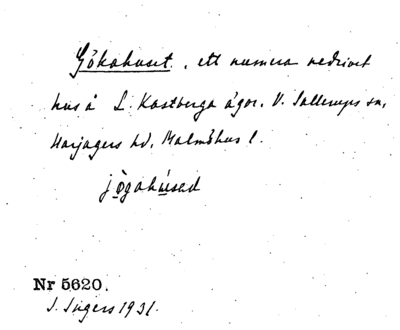 Gökahuset, ett numera nedrivet
hus å L. Kastberga ägor. V. Sallerups sn,
Harjagers hd, Malmöhus l.
jögahúsed
Nr 5620.
I. Ingers 1931.